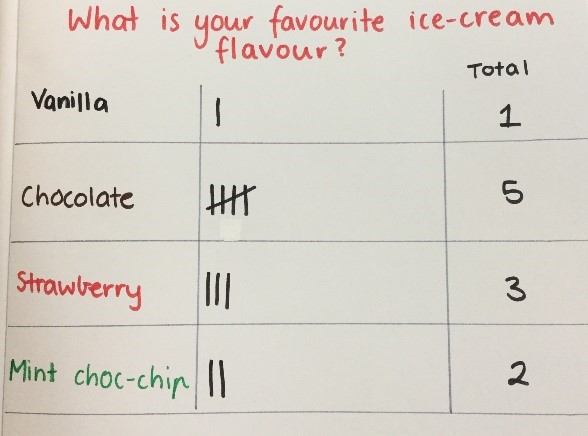 What is your favourite ice-cream
flavour?
Total
Vanilla | 1
Chocolate 𝍸 5
Strawberry ||| 3
Mint choc-chip || 2